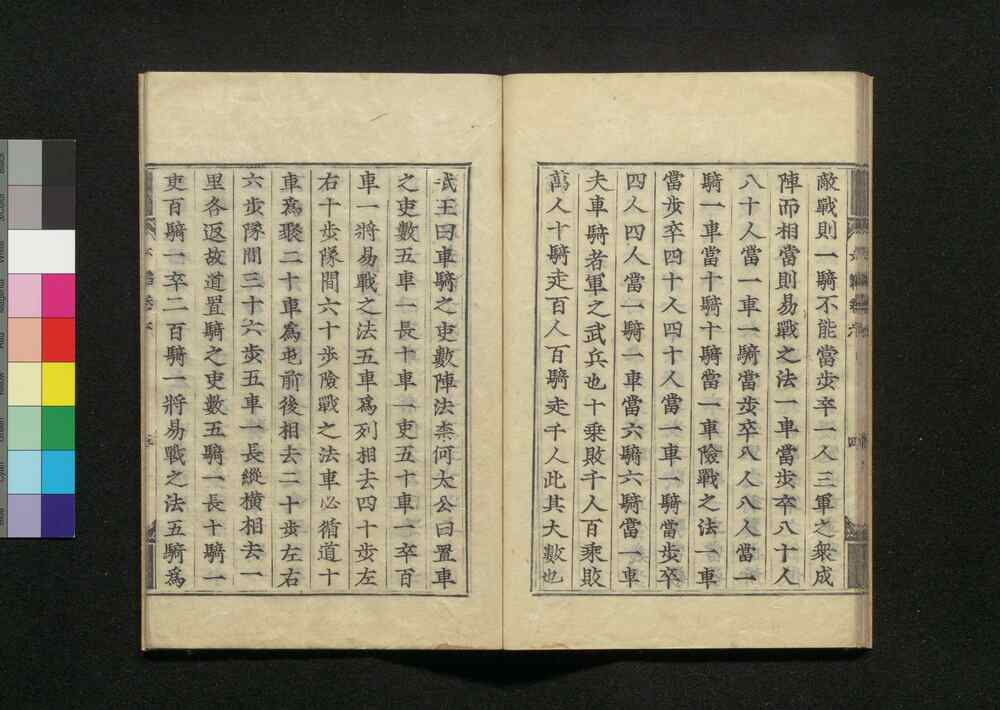 敵戰則一騎不能當步卒一人三軍之衆成
陣而相當則易戰之法一車當步卒八十人
八十人當一車一騎當步卒八人八人當一
騎一車當十騎十騎當一車險戰之法一車
當步卒四十人四十人當一車一騎當步卒
四人四人當一騎一車當六騎六騎當一車
夫車騎者軍之武兵也十乘敗千人百乘敗
萬人十騎走百人百騎走千人此其大數也
武王曰車騎之吏數陣法柰何太公曰置車
之吏數五車一長十車一吏五十車一卒百
車一將易戰之法五車爲列相去四十步左
右十步隊間六十步險戰之法車必循道十
車爲聚二十車爲屯前後相去二十步左右
六步隊間三十六步五車一長縱橫相去一
里各返故道置騎之吏數五騎一長十騎一
吏百騎一卒二百騎一將易戰之法五騎爲